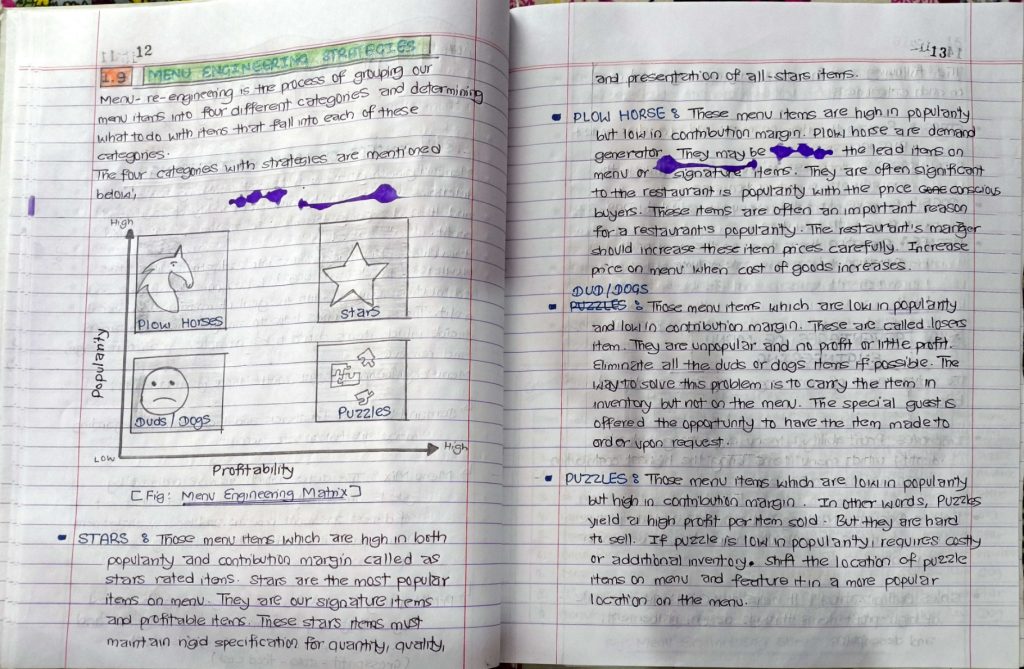 12
1.9 MENU ENGINEERING STRATEGIES
Menu-re-engineering is the process of grouping our
menu items into four different categories and determining
what to do with items that fall into each of these
categories.
The four categories with strategies are mentioned
below;
High
Plow Horses
Stars
Popularity
Duds/Dogs
Puzzles
Low
High
Profitability
[Fig: Menu Engineering Matrix]
STARS : Those menu items which are high in both
popularity and contribution margin called as
stars rated itens. Stars are the most popular
items on menu. They are our signature items
and profitable items. These stars items must
maintain rigid specification for quantity, quality,
13
and presentation of all-stars items.
PLOW HORSE : These menu items are high in popularity
but low in contribution margin. Plow horse are demand
generator. They may be the lead items on
menu or signature items. They are often significant
to the restaurant is popularity with the price conscious
buyers. These items are often an important reason
for a restaurant's popularity. The restaurant's manger
should increase these item prices carefully. Increase
price on menu when cost of goods increases.
DUD/DOGS
PUZZLES : Those menu items which are low in popularity
and low in contribution margin. These are called losers
item. They are unpopular and no profit or little profit.
Eliminate all the duds or dogs items if possible. The
way to solve this problem is to carry the item in
inventory but not on the menu. The special guest is
offered the opportunity to have the item made to
order upon request.
PUZZLES : Those menu items which are low in popularity
but high in contribution margin. In other words, Puzzles
yield a high profit per item sold. But they are hard
to sell. If puzzle is low in popularity, requires costly
or additional inventory. Shift the location of puzzle
items on menu and feature it in a more popular
location on the menu.